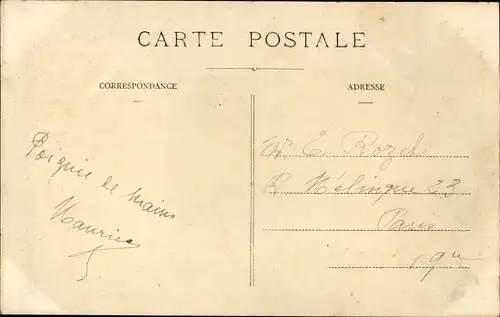 CARTE POSTALE
CORRESPONDANCE
ADRESSE
Poignée de mains
Maurice
Mr E. Rozek
R Mélingue 23
Paris
19me